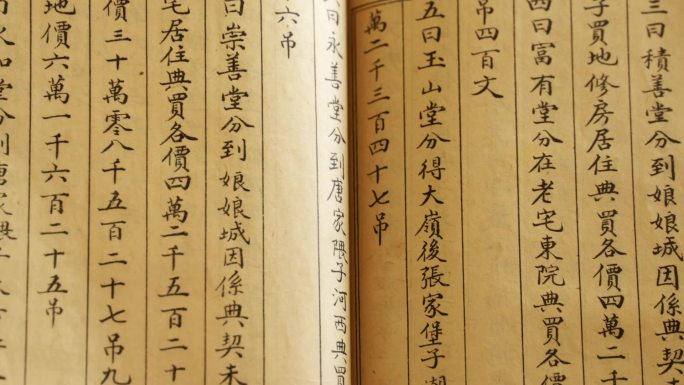 三曰積善堂分到娘娘城因係典契未
子買地修房居住典買各價四萬二千
四曰富有堂分在老宅東院典買各價
吊四百文
五曰玉山堂分得大嶺後張家堡子
萬二千三百四十七吊
六曰永善堂分到唐家隈子河西典買
六吊
曰崇善堂分到娘娘城因係典契未
宅居住典買各價四萬二千五百二十
價三十萬零八千五百二十七吊九
地價六萬一千六百二十五吊